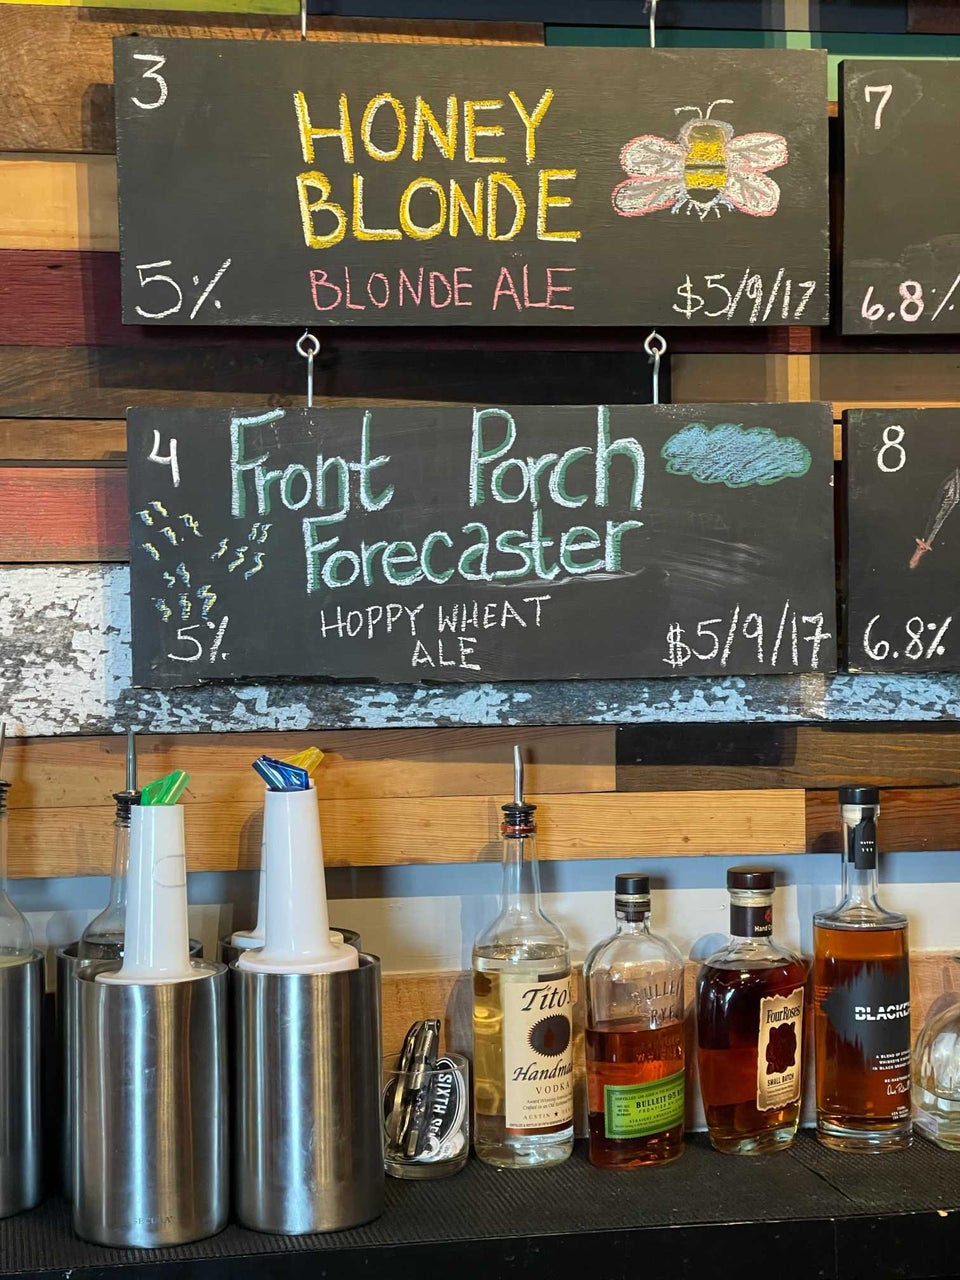 3
HONEY
BLONDE
5%
BLONDE ALE
$5/9/17
7
6.8%
4
Front Porch
Forecaster
5%
HOPPY WHEAT
ALE
$5/9/17
8
6.8%
Tito's
Handma
VODKA
AUSTIN
BULLEIT
RYE
BULLEIT 95
Four Roses
SMALL BATCH
BLACKE
A BLEND OF
SIXTH SE
SECURA